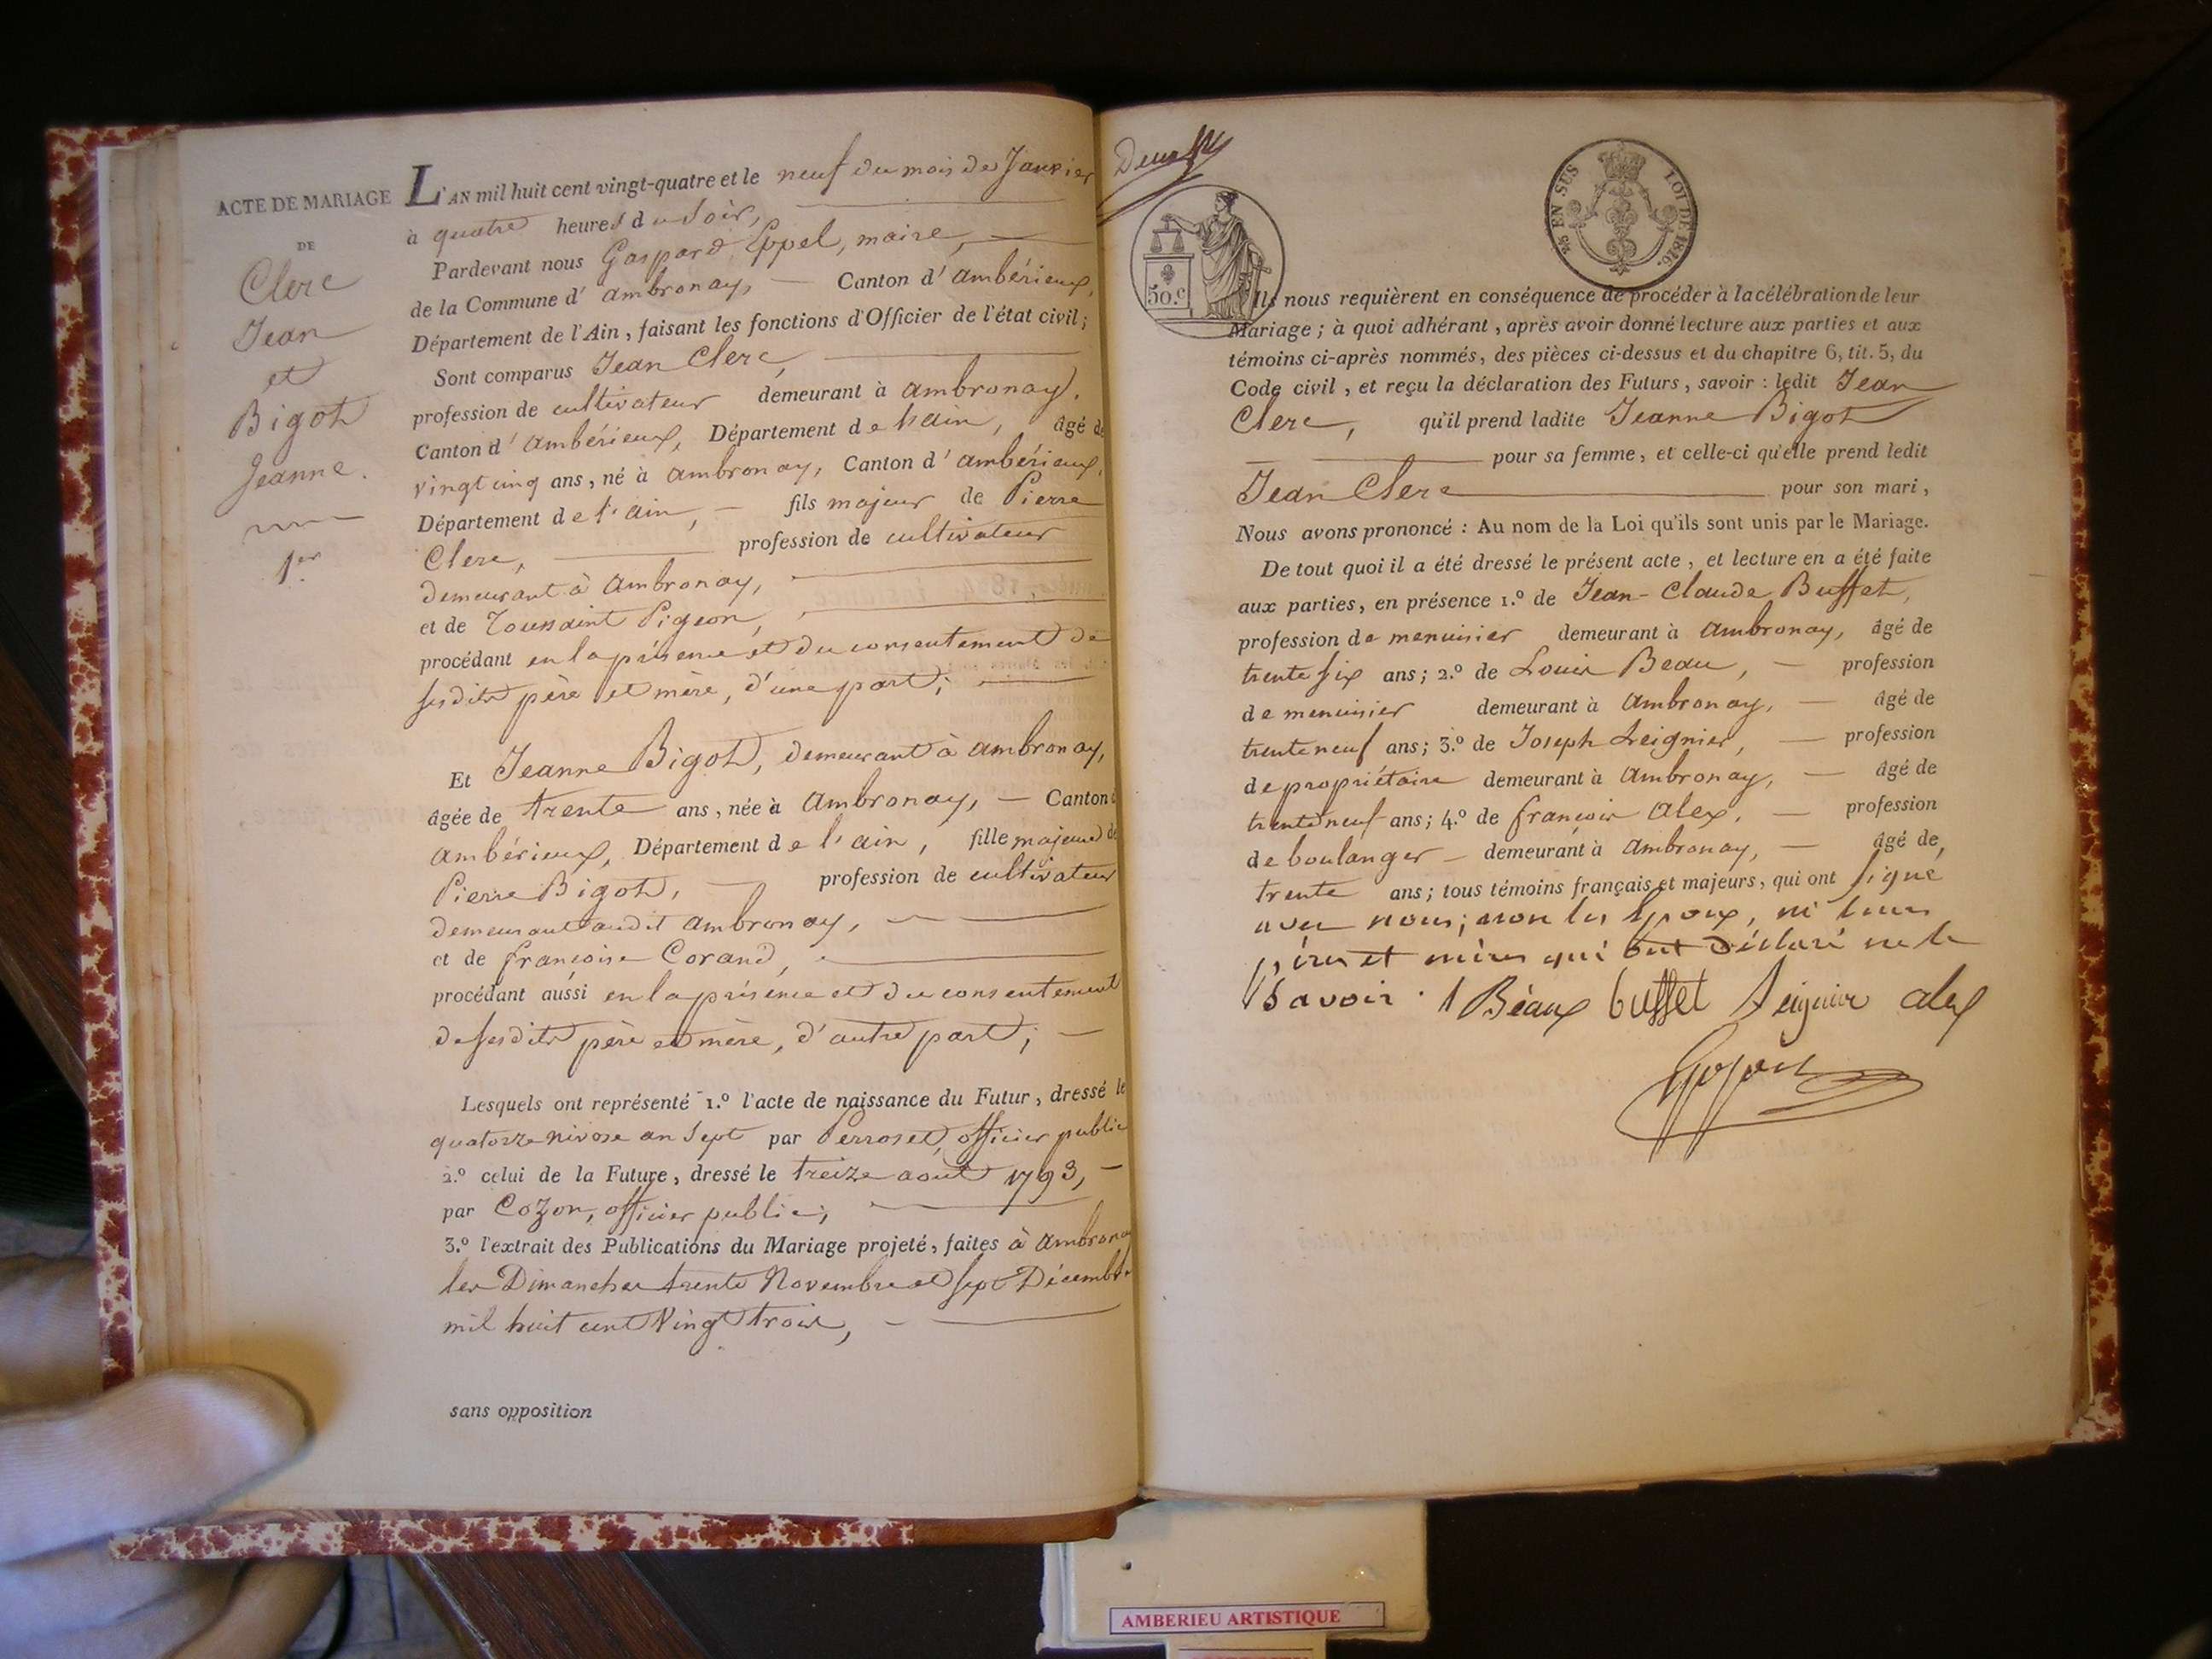 ACTE DE MARIAGE
DE
Clerc
Jean
et
Bigot
Jeanne.
1er
L'AN mil huit cent vingt-quatre et le neuf du mois de Janvier
à quatre heures du soir,
Pardevant nous Gaspard Eppel, maire,
de la Commune d'ambronay, Canton d'ambérieux,
Département de l'Ain, faisant les fonctions d'Officier de l'état civil;
Sont comparus Jean Clerc,
profession de cultivateur demeurant à ambronay,
Canton d'ambérieux, Département de l'ain, âgé de
vingt cinq ans, né à ambronay, Canton d'ambérieux,
Département de l'ain, fils majeur de Pierre
Clerc, profession de cultivateur
demeurant à ambronay,
et de Toussaint Pigeon,
procédant en la présence et du consentement de
ses dits père et mère, d'une part;
Et Jeanne Bigot, demeurant à ambronay,
âgée de trente ans, née à ambronay, Canton d'
ambérieux, Département de l'ain, fille majeure de
Pierre Bigot, profession de cultivateur
demeurant audit ambronay,
et de françoise Corand,
procédant aussi en la présence et du consentement
de ses dits père et mère, d'autre part;
Lesquels ont représenté 1.º l'acte de naissance du Futur, dressé le
quatorze nivose an sept par Perroset, officier public
2.º celui de la Future, dressé le treize aout 1793,
par Cozon, officier public;
3.º l'extrait des Publications du Mariage projeté, faites à ambronay
les Dimanches trente Novembre et sept Décembre
mil huit cent Vingt trois,
sans opposition
50.c
25 EN SUS LOI DE 1816.
Ils nous requièrent en conséquence de procéder à la célébration de leur
Mariage; à quoi adhérant, après avoir donné lecture aux parties et aux
témoins ci-après nommés, des pièces ci-dessus et du chapitre 6, tit. 5, du
Code civil, et reçu la déclaration des Futurs, savoir : ledit Jean
Clerc, qu'il prend ladite Jeanne Bigot
pour sa femme, et celle-ci qu'elle prend ledit
Jean Clerc pour son mari,
Nous avons prononcé : Au nom de la Loi qu'ils sont unis par le Mariage.
De tout quoi il a été dressé le présent acte, et lecture en a été faite
aux parties, en présence 1.º de Jean-Claude Buffet,
profession de menuisier demeurant à ambronay, âgé de
trente six ans; 2.º de Louis Beau, profession
de menuisier demeurant à ambronay, âgé de
trente neuf ans; 3.º de Joseph Leignier, profession
de propriétaire demeurant à ambronay, âgé de
trente neuf ans; 4.º de françois alex, profession
de boulanger demeurant à ambronay, âgé de
trente ans; tous témoins français et majeurs, qui ont signé
avec nous; non les Epoux, ni leurs
pères et mères qui ont déclaré ne le
savoir. Béaux buffet Leignier alex
AMBERIEU ARTISTIQUE